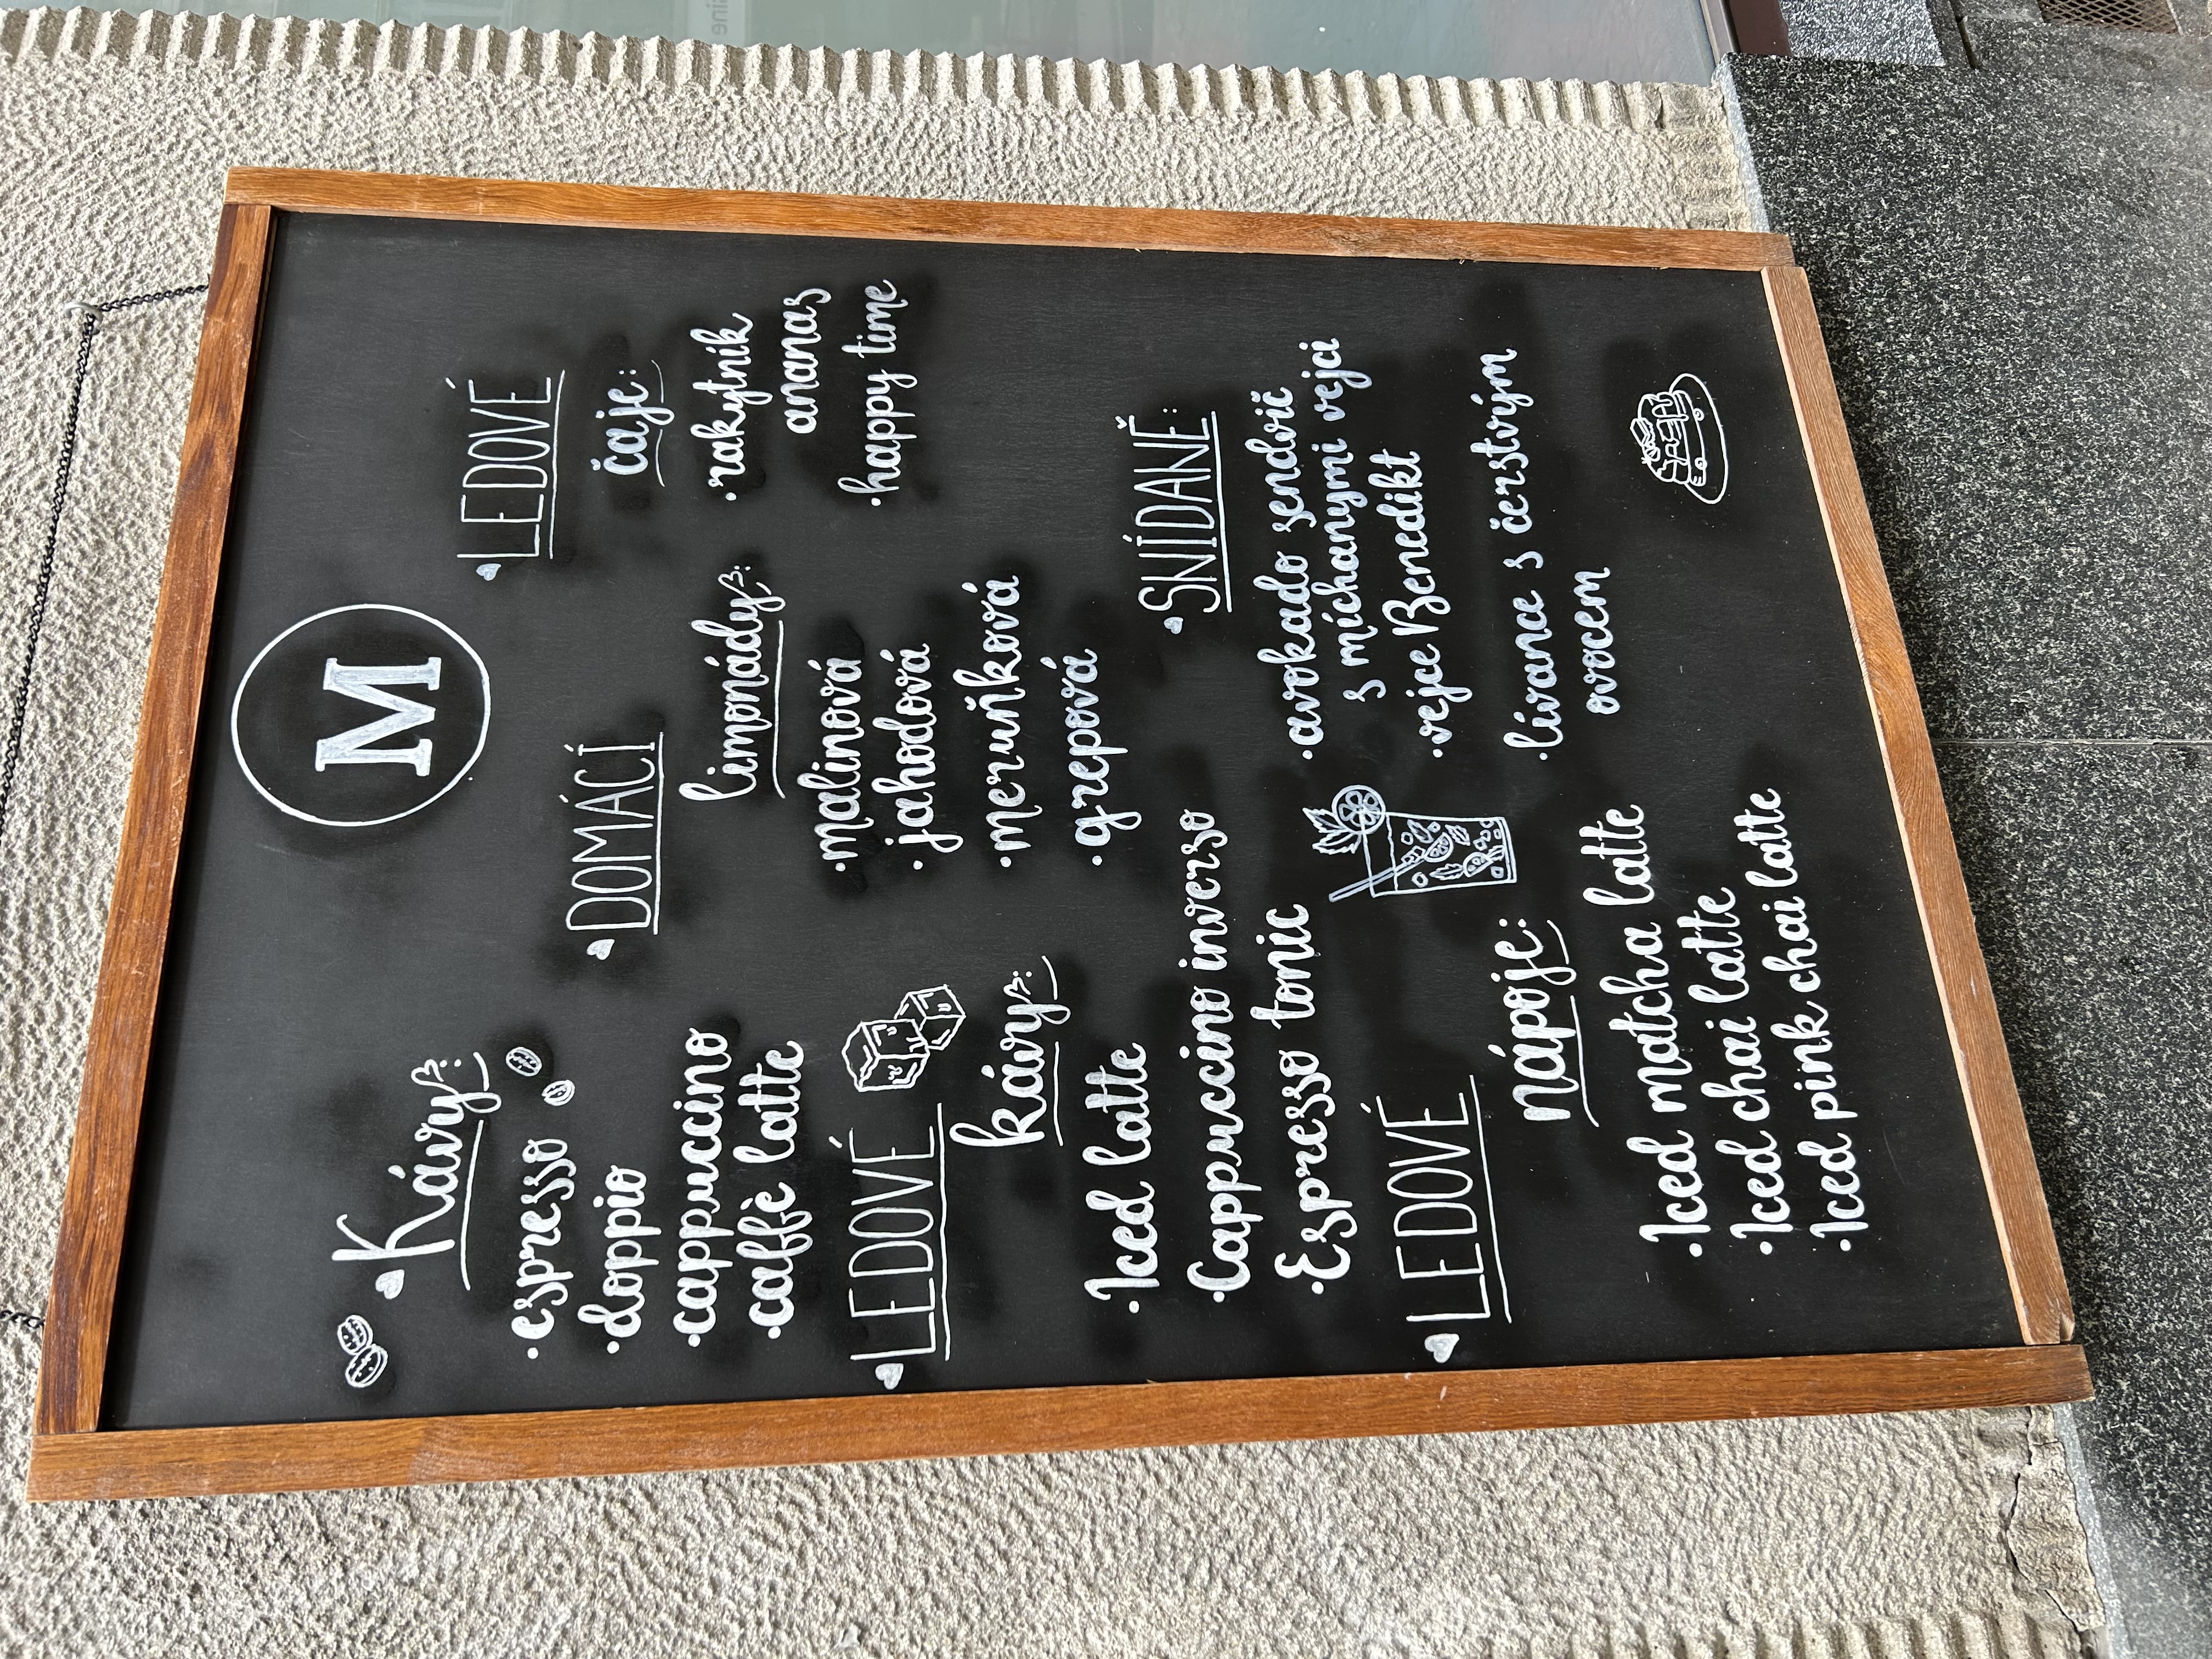 M
Kávy:
·espresso
·doppio
·cappuccino
·caffè latte
LEDOVÉ
kávy:
·Iced latte
·Cappuccino inverso
·Espresso tonic
LEDOVÉ
nápoje:
·Iced matcha latte
·Iced chai latte
·Iced pink chai latte
DOMÁCÍ
limonády:
·malinová
·jahodová
·meruňková
·grepová
LEDOVÉ
čaje:
·rakytník
ananas
·happy time
SNÍDANĚ:
·avokado sendvič
s míchanými vejci
·vejce Benedikt
·lívance s čerstvým
ovocem